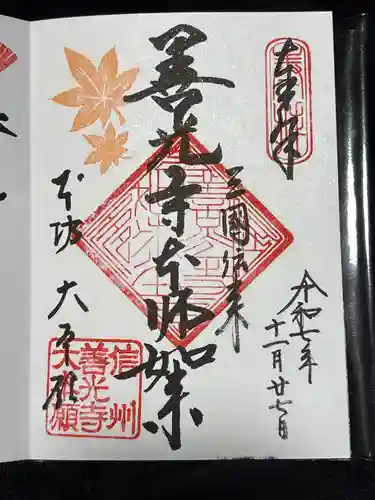 奉拝
三國伝来
善光寺本師如来
本坊 大本願
令和七年
十一月廿七日
信州
善光寺
大本願